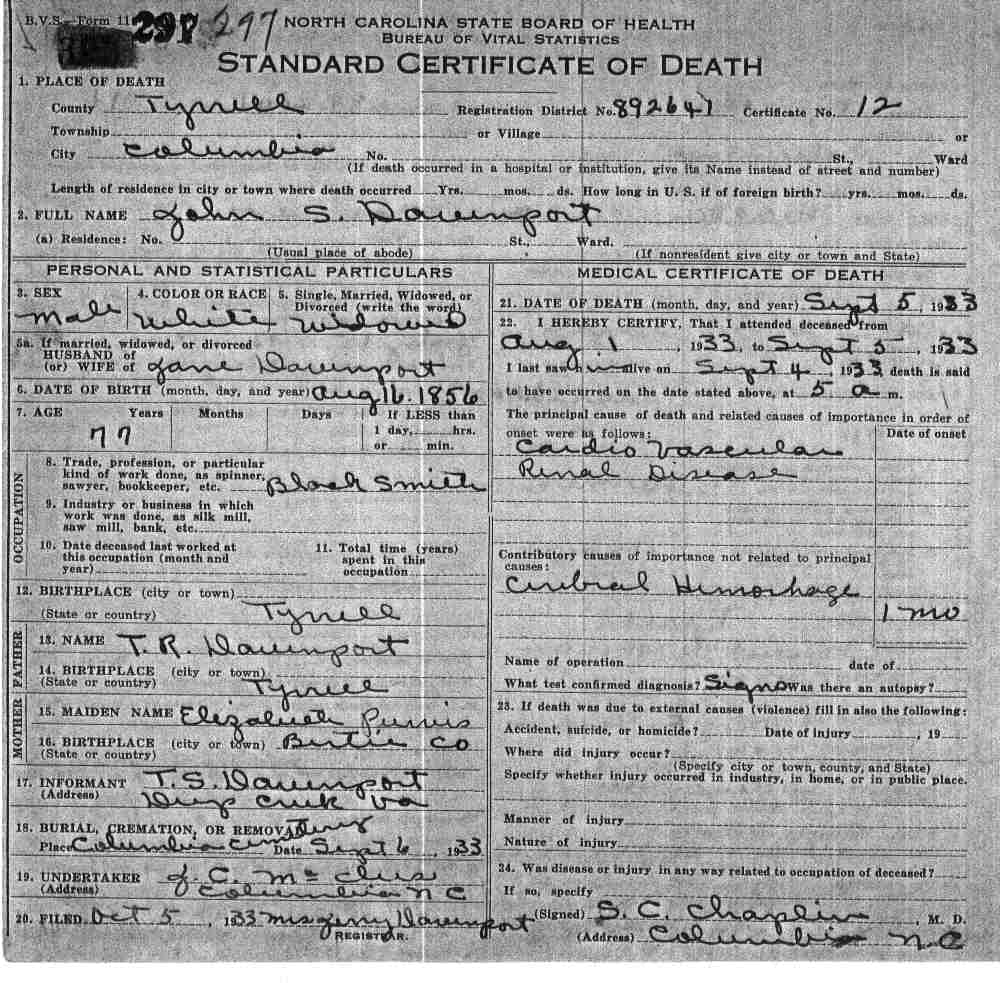 B.V.S.—Form 11 297 297 NORTH CAROLINA STATE BOARD OF HEALTH
BUREAU OF VITAL STATISTICS
STANDARD CERTIFICATE OF DEATH
1. PLACE OF DEATH
County Tyrrell Registration District No. 892641 Certificate No. 12
Township or Village or
City Columbia No. St., Ward
(If death occurred in a hospital or institution, give its Name instead of street and number)
Length of residence in city or town where death occurred Yrs. mos. ds. How long in U. S. if of foreign birth? yrs. mos. ds.
2. FULL NAME John S. Davenport
(a) Residence: No. St., Ward.
(Usual place of abode) (If nonresident give city or town and State)
PERSONAL AND STATISTICAL PARTICULARS
3. SEX 4. COLOR OR RACE 5. Single, Married, Widowed, or
Divorced (write the word)
Male White Widowed
5a. If married, widowed, or divorced
HUSBAND of
(or) WIFE of Jane Davenport
6. DATE OF BIRTH (month, day, and year) Aug 16. 1856
7. AGE Years Months Days If LESS than
77 1 day, hrs.
or min.
OCCUPATION
8. Trade, profession, or particular
kind of work done, as spinner,
sawyer, bookkeeper, etc. Black Smith
9. Industry or business in which
work was done, as silk mill,
saw mill, bank, etc.
10. Date deceased last worked at
this occupation (month and
year)
11. Total time (years)
spent in this
occupation
12. BIRTHPLACE (city or town)
(State or country) Tyrrell
FATHER
13. NAME T. R. Davenport
14. BIRTHPLACE (city or town)
(State or country) Tyrrell
MOTHER
15. MAIDEN NAME Elizabeth Purvis
16. BIRTHPLACE (city or town) Bertie Co
(State or country)
17. INFORMANT T. S. Davenport
(Address) Deep Creek Va
18. BURIAL, CREMATION, OR REMOVAL
Place Columbia Cemetery Date Sept 6, 1933
19. UNDERTAKER J. C. Mc
(Address) Columbia N C
20. FILED Oct 5, 1933 Mrs Jerry Davenport
REGISTRAR.
MEDICAL CERTIFICATE OF DEATH
21. DATE OF DEATH (month, day, and year) Sept 5, 1933
22. I HEREBY CERTIFY, That I attended deceased from
Aug 1, 1933, to Sept 5, 1933
I last saw him alive on Sept 4, 1933 death is said
to have occurred on the date stated above, at 5 a m.
The principal cause of death and related causes of importance in order of
onset were as follows: Date of onset
Cardio Vascular
Renal Disease
Contributory causes of importance not related to principal
causes:
Cerebral Hemorhage
1 mo
Name of operation date of
What test confirmed diagnosis? Signs Was there an autopsy?
23. If death was due to external causes (violence) fill in also the following:
Accident, suicide, or homicide? Date of injury, 19
Where did injury occur?
(Specify city or town, county, and State)
Specify whether injury occurred in industry, in home, or in public place.
Manner of injury
Nature of injury
24. Was disease or injury in any way related to occupation of deceased?
If so, specify
(Signed) S. C. Chaplin, M. D.
(Address) Columbia N. C